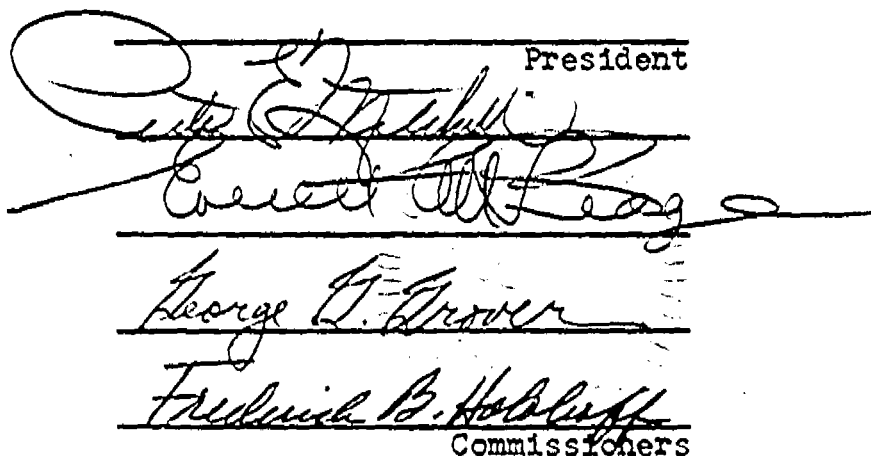 President
Peter E. Mitchell
Everett McKeage
George G. Grover
Frederick B. Holoboff
Commissioners